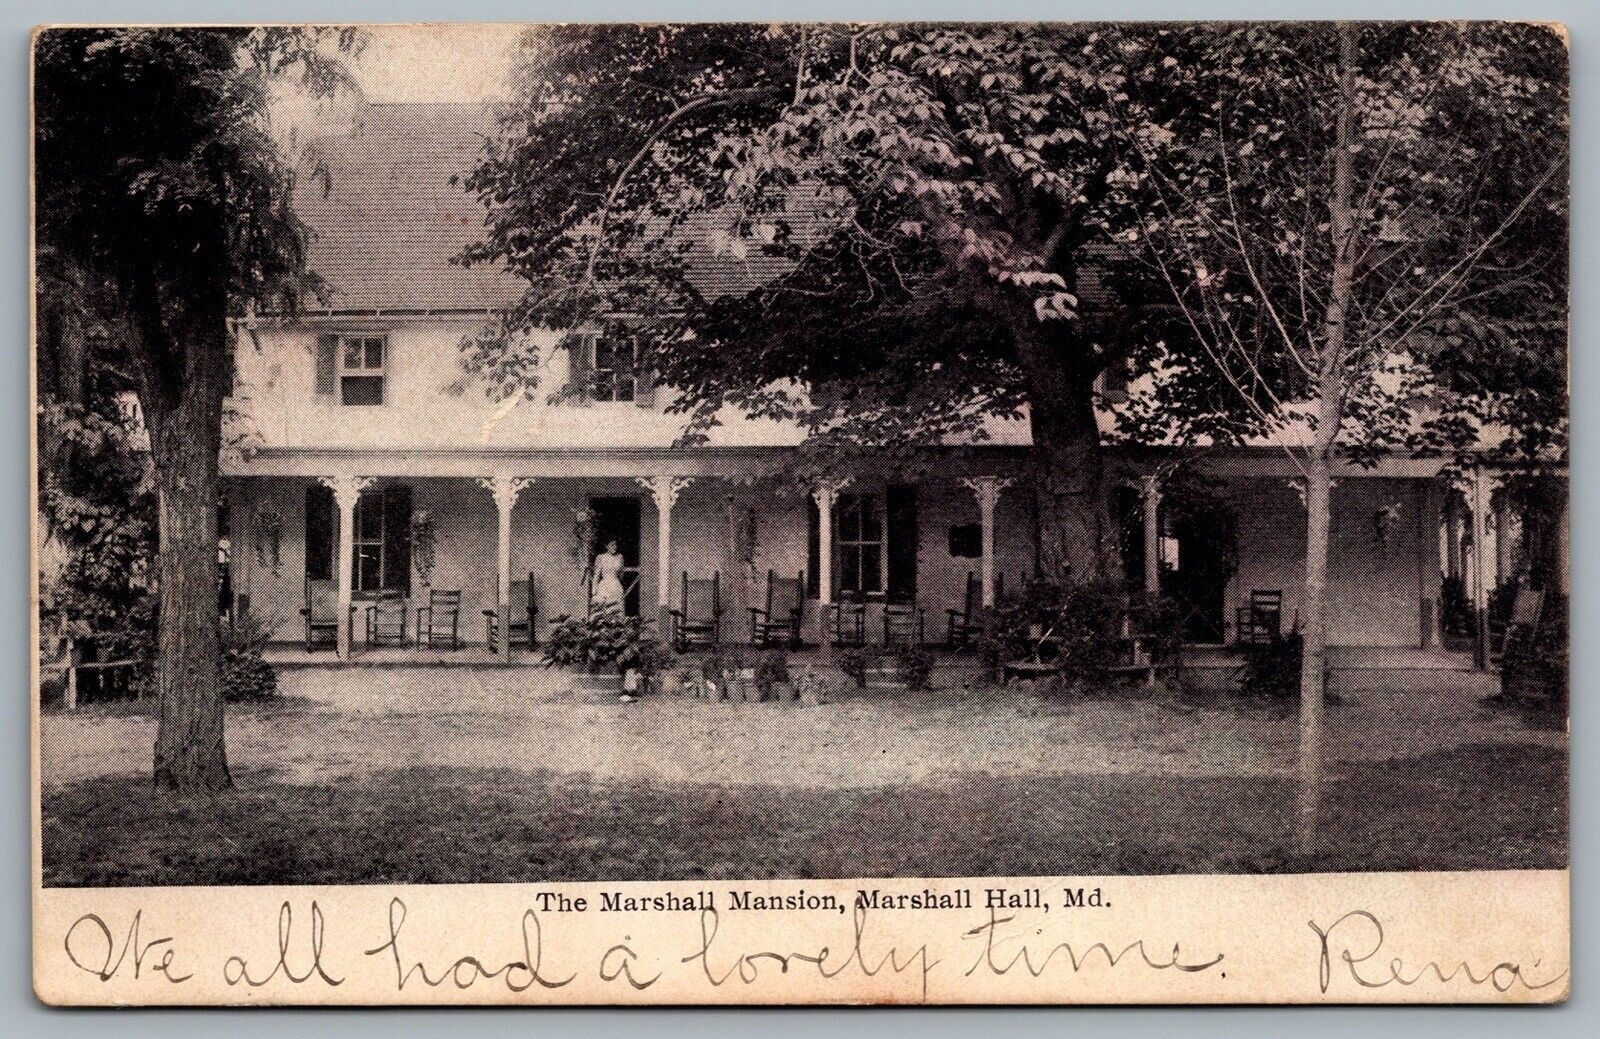 The Marshall Mansion, Marshall Hall, Md.
We all had a lovely time. Rena